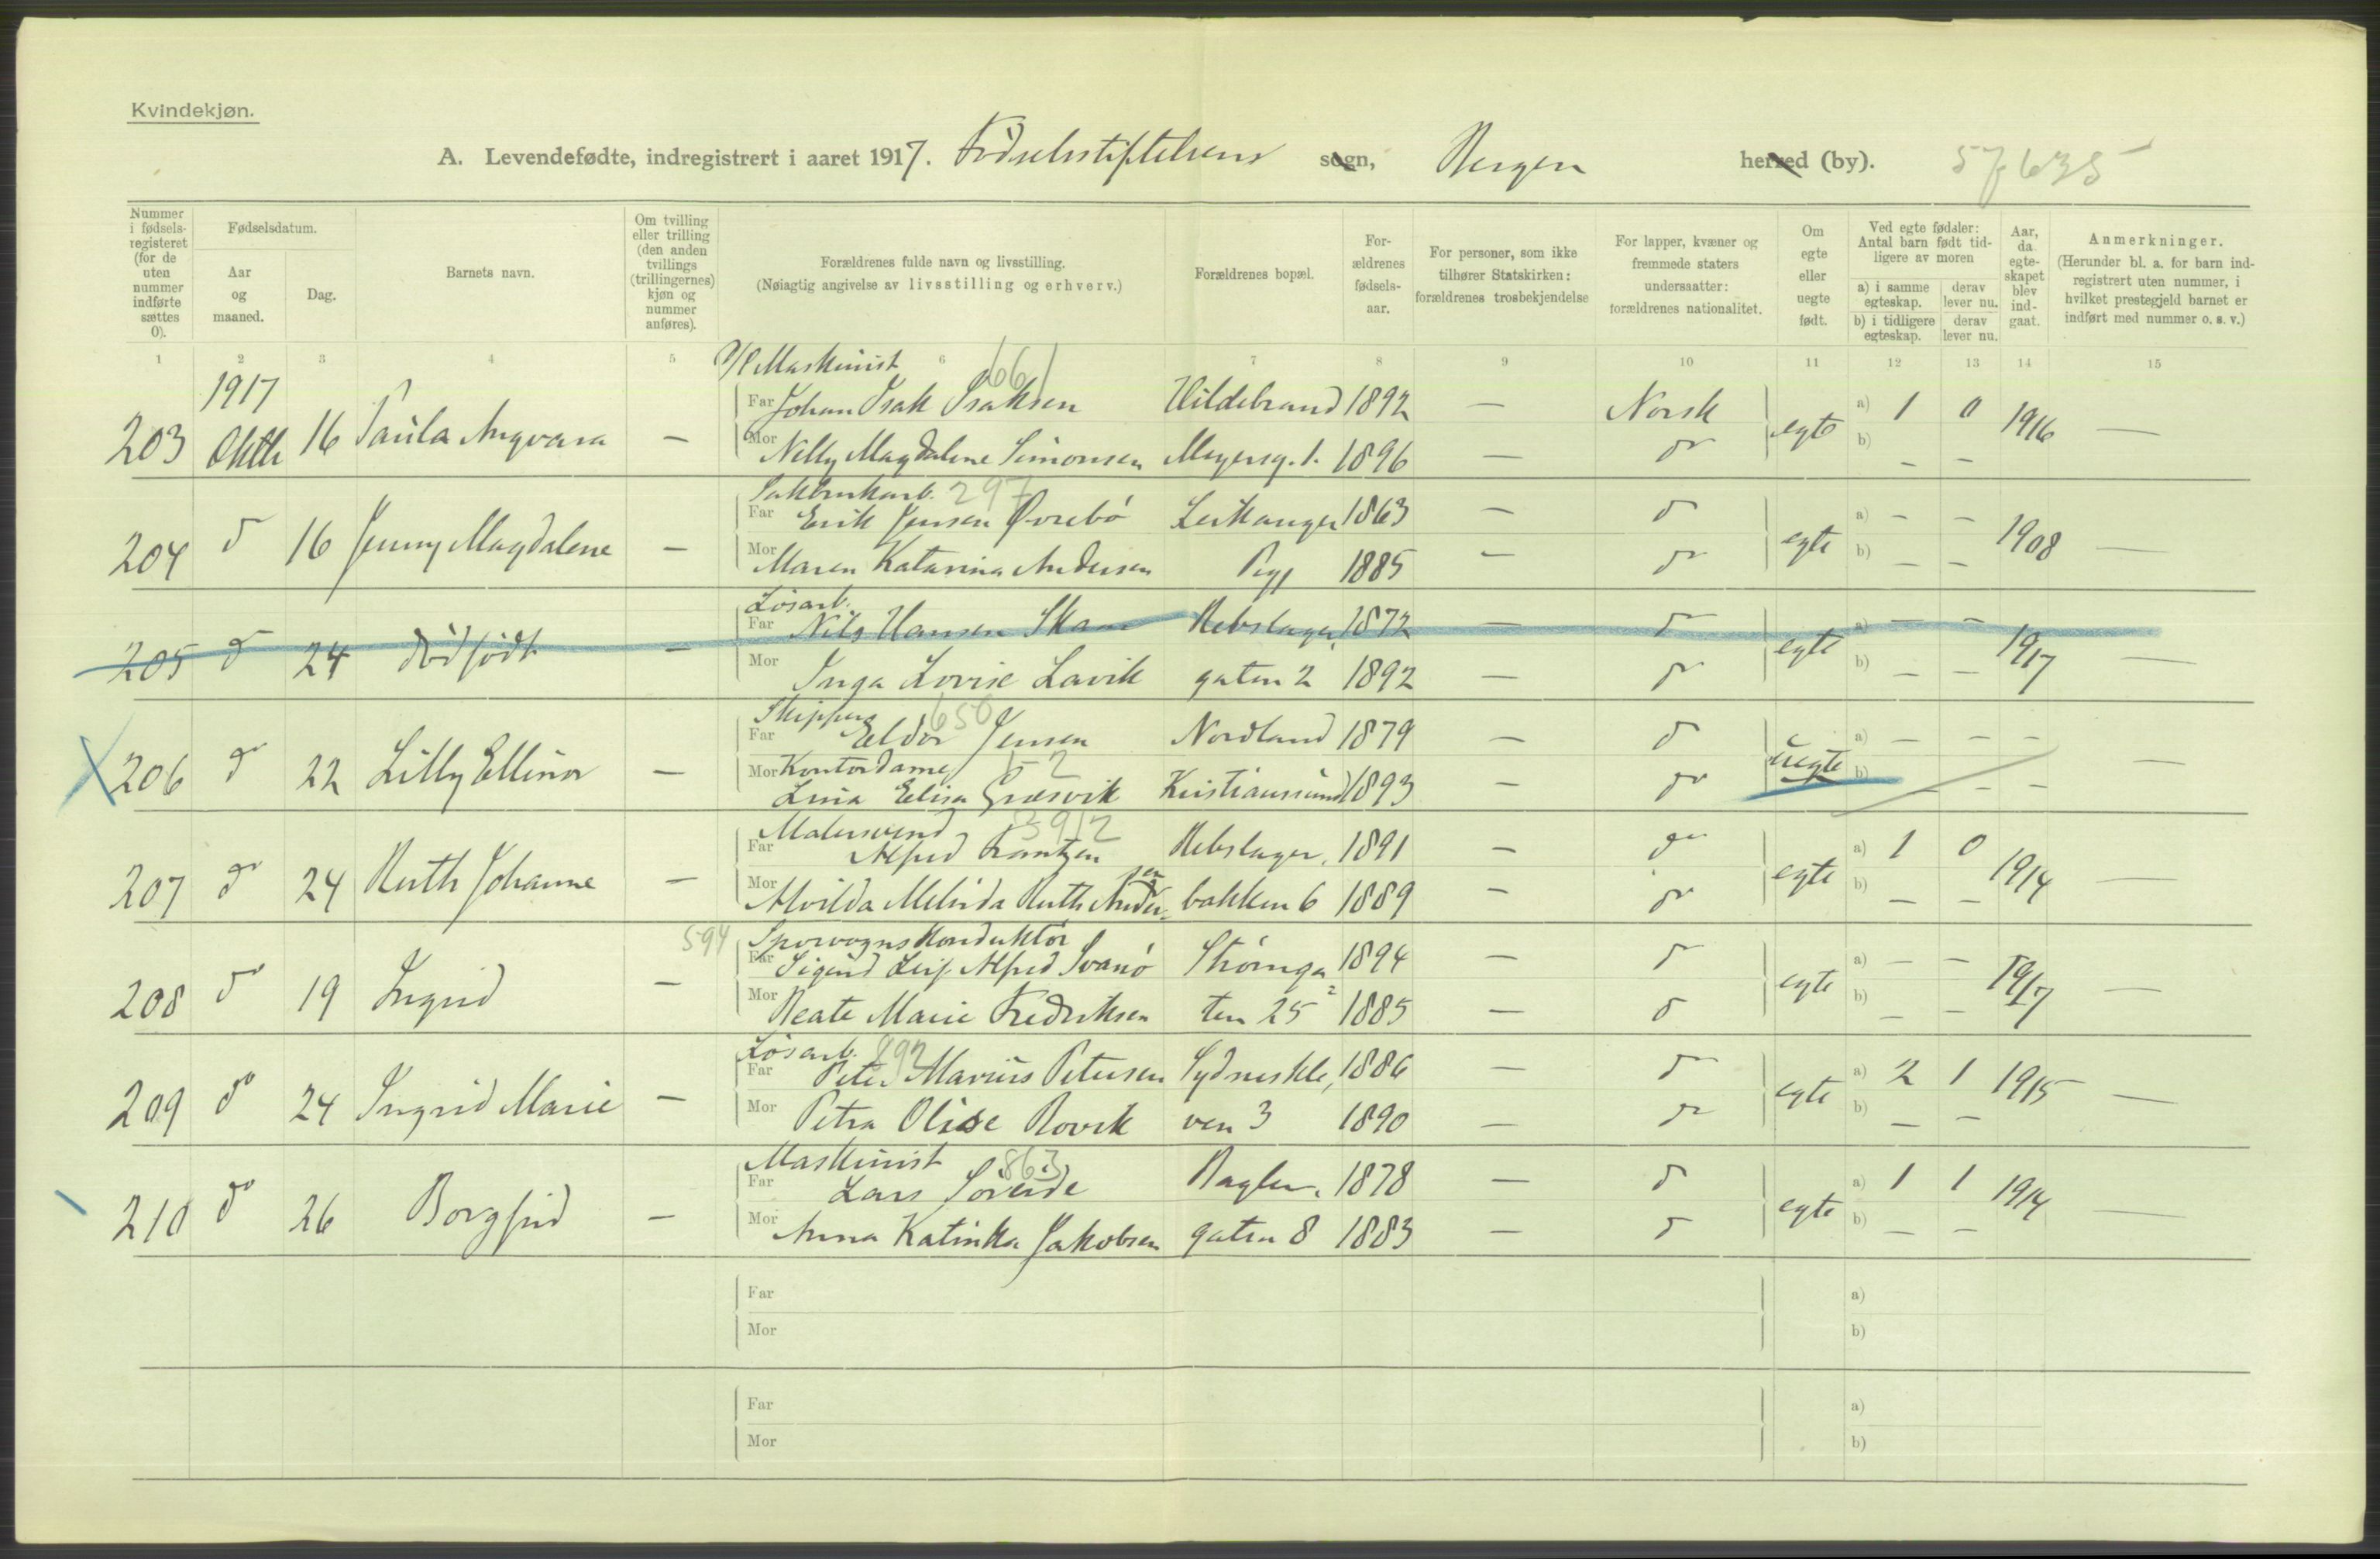 Kvindekjøn.
A. Levendefødte, indregistrert i aaret 1917. Fødselsstiftelsens sogn, Bergen herred (by). 57635
Nummer i fødsels-registeret (for de uten nummer indførte sættes 0).
Fødselsdatum.
Aar og maaned.
Dag.
Barnets navn.
Om tvilling eller trilling (den anden tvillings (trillingernes) kjøn og nummer anføres).
Forældrenes fulde navn og livsstilling.
(Nøiagtig angivelse av livsstilling og erhverv.)
Forældrenes bopæl.
For-ældrenes fødsels-aar.
For personer, som ikke tilhører Statskirken: forældrenes trosbekjendelse
For lapper, kvæner og fremmede staters undersaatter: forældrenes nationalitet.
Om egte eller uegte født.
Ved egte fødsler: Antal barn født tid-ligere av moren
a) i samme egteskap. derav lever nu.
b) i tidligere egteskap. derav lever nu.
Aar, da egte-skapet blev ind-gaat.
Anmerkninger.
(Herunder bl. a. for barn ind-registrert uten nummer, i hvilket prestegjeld barnet er indført med nummer o. s. v.)
1 2 3 4 5 6 7 8 9 10 11 12 13 14 15
1917
Maskinist 661
203 Oktb 16 Paula Ingvara — Far Johan Isak Isaksen Hildebrand 1892 — Norsk egte a) 1 0 1916 —
Mor Nelly Magdalene Simonsen Meyersg. 1. 1896 — do b) — —
Sakbrukarb. 297
204 do 16 Jenny Magdalene — Far Erik Jensen Øvrebö Leikanger 1863 — do egte a) — — 1908 —
Mor Maren Katarina Andersen 1885 — do b) — —
Løsarb.
205 do 24 dødfødt — Far Nils Hansen Skaar Rebslager 1872 — do egte a) — — 1917 —
Mor Inga Lovise Lavik gaten 2 1892 — do b) — —
Skipper 650
206 do 22 Lilly Ellinor — Far Eldor Jensen Nordland 1879 — do uegte a) — — — —
Mor Kontordame 1-2
Lina Elisa Græsvik Kristianssund 1893 — do b) — — —
Malersvend 3912
207 do 24 Ruth Johanne — Far Alfred Lorntzen Rebslager. 1891 — do egte a) 1 0 1914 —
Mor Alvilda Melvida Ruth Andersen bakken 6 1889 — do b) — —
594 Sporvognskonduktör
208 do 19 Ingrid — Far Sigurd Leif Alfred Svanö Strömga 1894 — do egte a) — — 1917 —
Mor Beate Marie Fredriksen ten 25 2 1885 — do b) — —
Løsarb. 892
209 do 24 Ingrid Marie — Far Peter Marius Petersen Sydneskle, 1886 — do egte a) 2 1 1915 —
Mor Petra Olise Rovik ven 3 1890 — do b) — —
Maskinist 863
210 do 26 Borgfrid — Far Lars Söreide Nagler. 1878 — do egte a) 1 1 1914 —
Mor Anna Katinka Jakobsen gaten 8 1883 — do b) — —
Far a)
Mor b)
Far a)
Mor b)